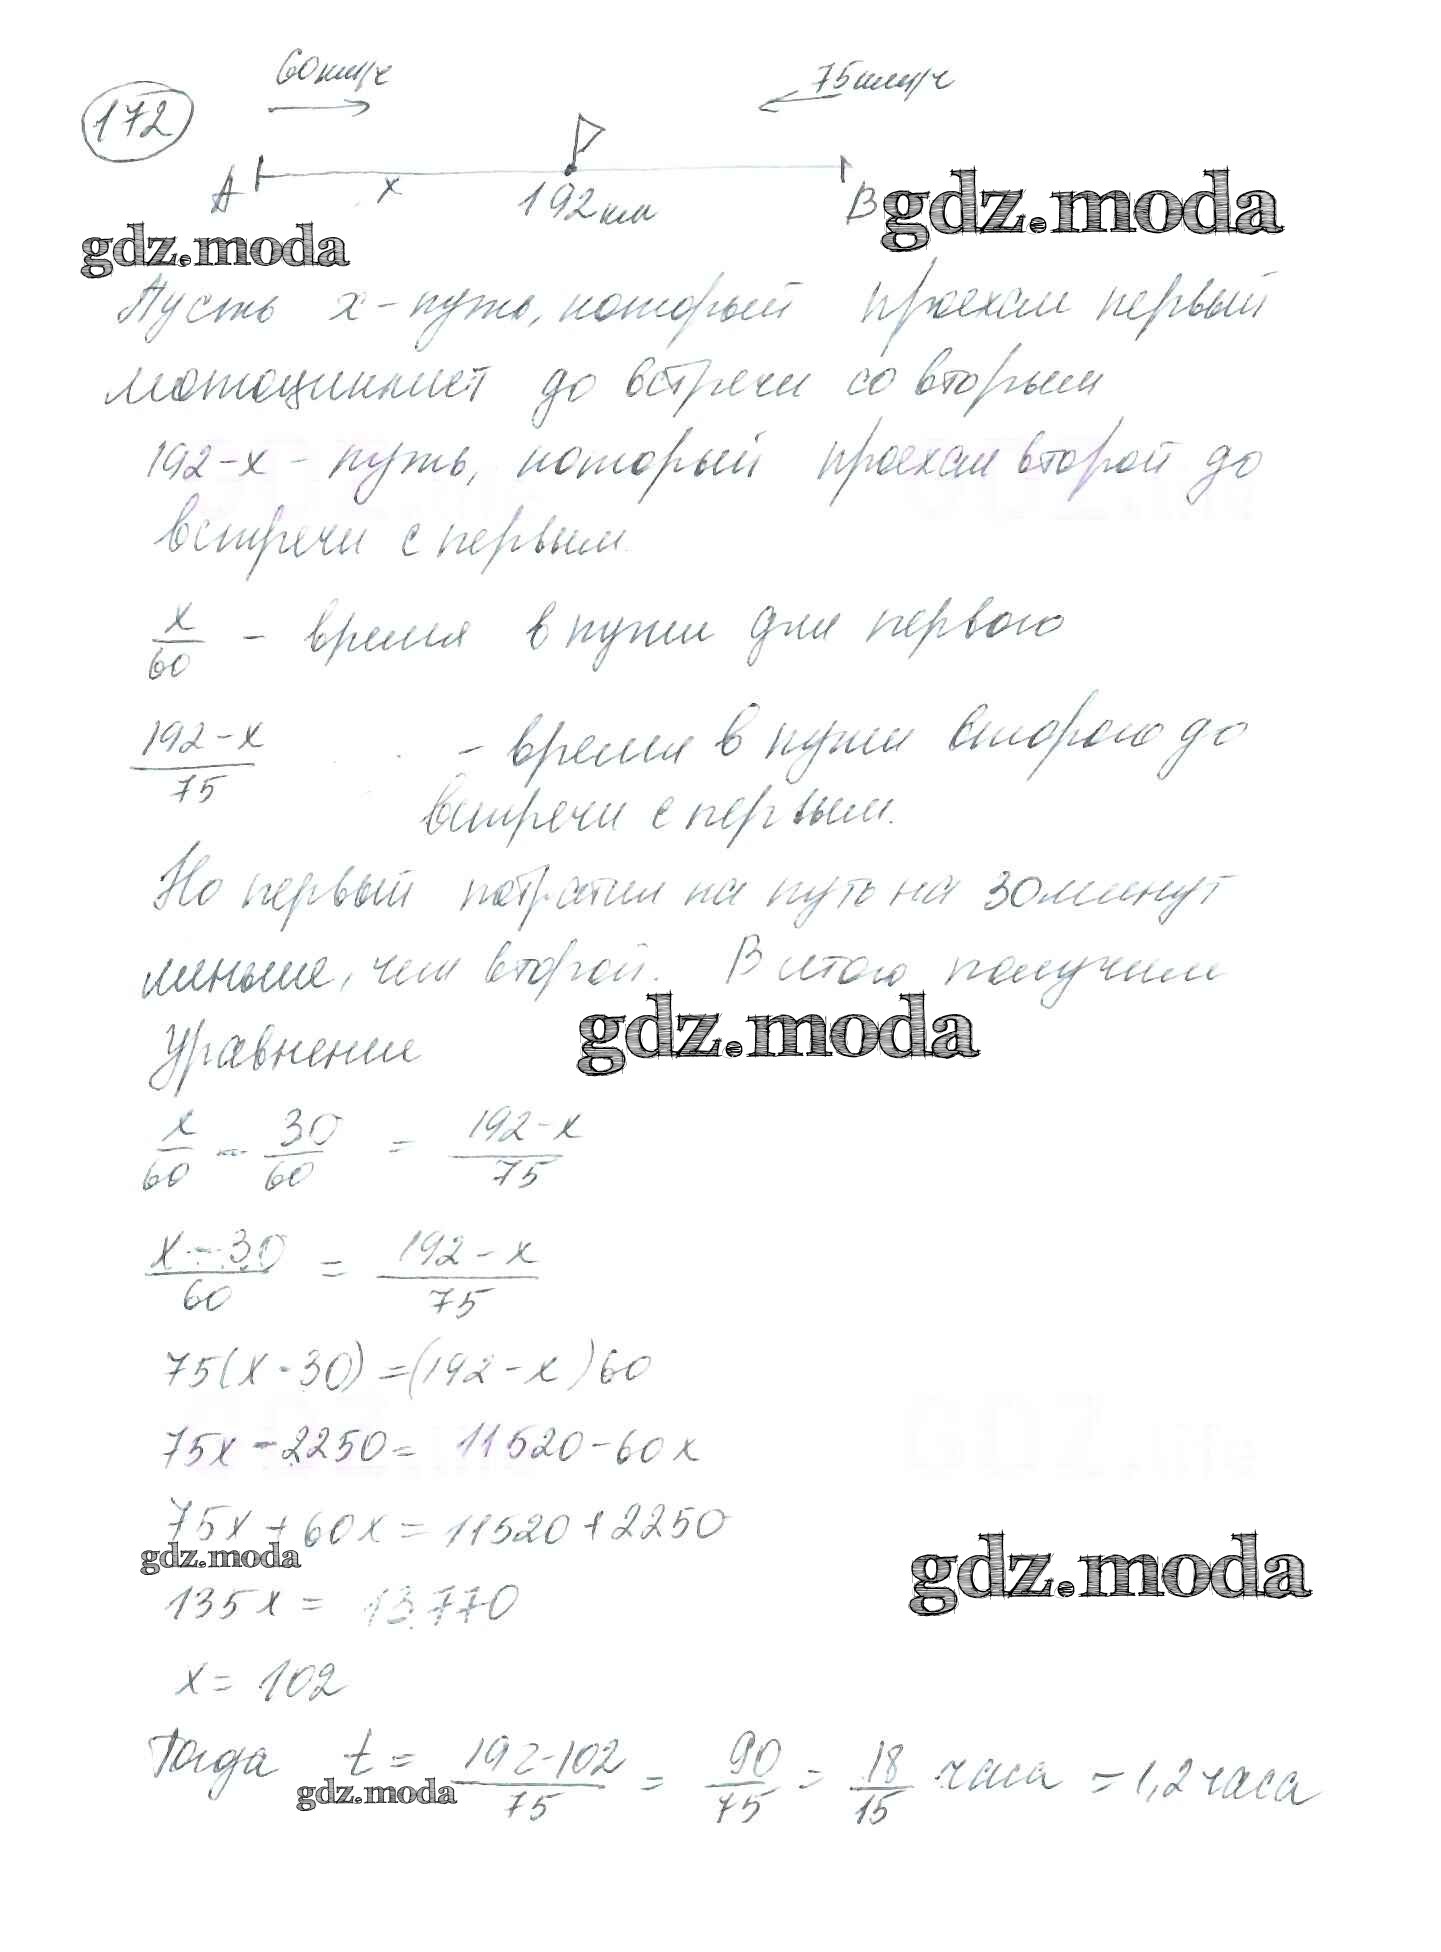 60км/ч
75км/ч
172
A
x
192км
B
gdz.moda
gdz.moda
Пусть x - путь, который проехал первый
мотоциклист до встречи со вторым
192-x - путь, который проехал второй до
встречи с первым.
x/60 - время в пути для первого
192-x/75 - время в пути второго до
встречи с первым.
Но первый потратил на путь на 30 минут
меньше, чем второй. В итоге получим
gdz.moda
Уравнение
x/60 - 30/60 = 192-x/75
x-30/60 = 192-x/75
75(x-30)=(192-x)60
75x-2250= 11520-60x
75x+60x=11520+2250
gdz.moda
gdz.moda
135x= 13770
x= 102
Тогда t= 192-102/75 = 90/75 = 18/15 часа =1,2 часа
gdz.moda